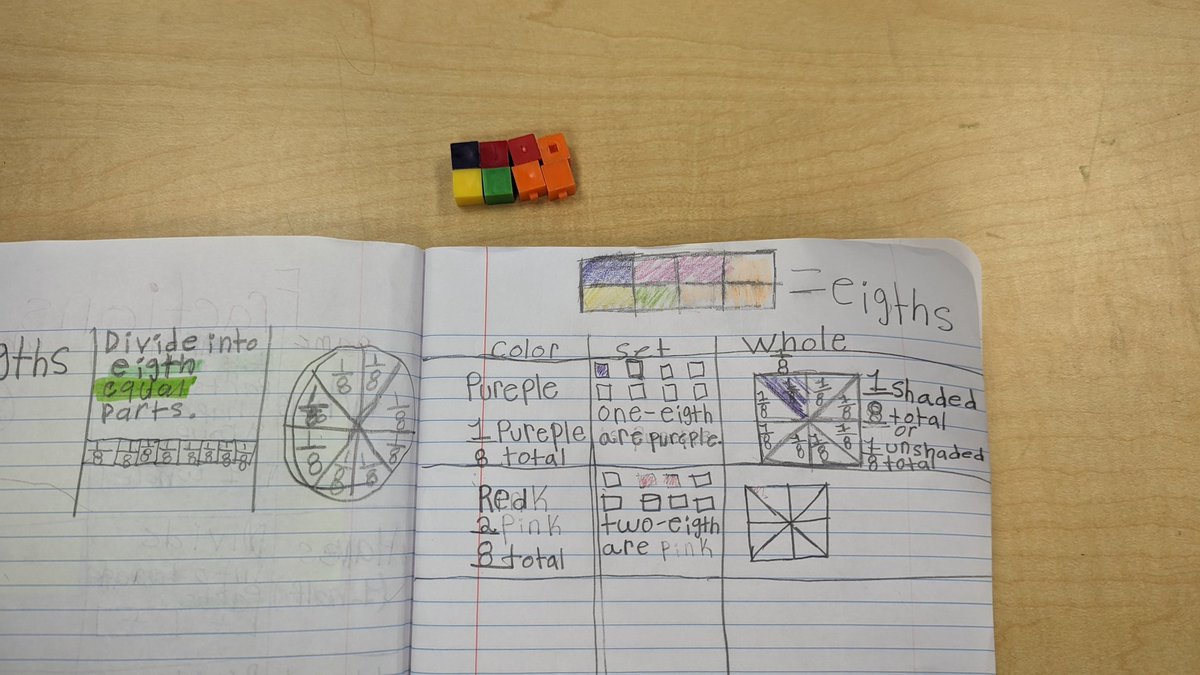 gths
Divide into
eigth
equal
parts.
1/8 1/8 1/8 1/8 1/8 1/8 1/8 1/8
1/8 1/8
1/8 1/8
1/8 1/8
1/8 1/8
= eigths
color set whole
Pureple
1 Pureple
8 total
one-eigth
are pureple.
1/8
1/8 1/8
1/8 1/8
1/8 1/8
1/8 1/8
1 shaded
8 total
or
1 unshaded
8 total
Redk
2 Pink
8 total
two-eigth
are pink